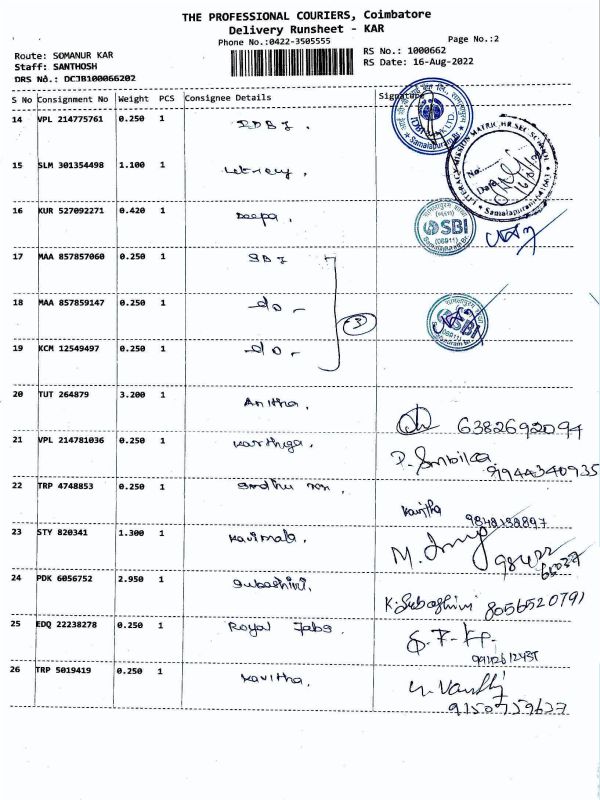 THE PROFESSIONAL COURIERS, Coimbatore
Delivery Runsheet - KAR
Phone No.:0422-3505555
Page No.:2
Route: SOMANUR KAR
RS No.: 1000662
Staff: SANTHOSH
RS Date: 16-Aug-2022
DRS No.: DCJB100066202
S No Consignment No Weight PCS Consignee Details Signature
14 VPL 214775761 0.250 1 IDBI.
15 SLM 301354498 1.100 1
16 KUR 527092271 0.420 1 Deepa.
17 MAA 857857060 0.250 1 SBI
18 MAA 859859147 0.250 1 do -
19 KCM 12549497 0.250 1 do -
3
20 TUT 264879 3.200 1 Anitha.
6382692094
21 VPL 214781036 0.250 1 Karthiga.
P. Ambika
9944340935
22 TRP 4748853 0.250 1
Kavitha
23 STY 820341 1.300 1 Kavimala.
24 PDK 6056752 2.950 1 Subashini.
K. Subashini 8056520791
25 EDQ 22238278 0.250 1 Royal Fabs.
26 TRP 5019419 0.250 1 Kavitha.
9150759627
IDBI BANK LTD.
Samalapuram
LITERACY MISSION MATRIC. HR. SEC. SCHOOL
No.
Date
SBI
(06911)
SBI